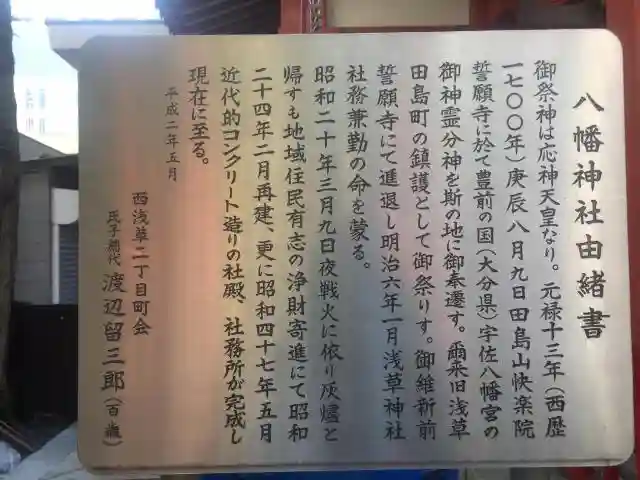 八幡神社由緒書
御祭神は応神天皇なり。元禄十三年（西歴
一七〇〇年）庚辰八月九日田島山快楽院
誓願寺に於て豊前の国（大分県）宇佐八幡宮の
御神霊分神を斯の地に御奉遷す。爾来旧浅草
田島町の鎮護として御祭りす。御維新前
誓願寺にて進退し明治六年一月浅草神社
社務兼勤の命を蒙る。
昭和二十年三月九日夜戦火に依り灰燼と
帰すも地域住民有志の浄財寄進にて昭和
二十四年二月再建、更に昭和四十七年五月
近代的コンクリート造りの社殿、社務所が完成し
現在に至る。
平成二年五月
西浅草二丁目町会
氏子総代 渡辺留三郎（百歳）